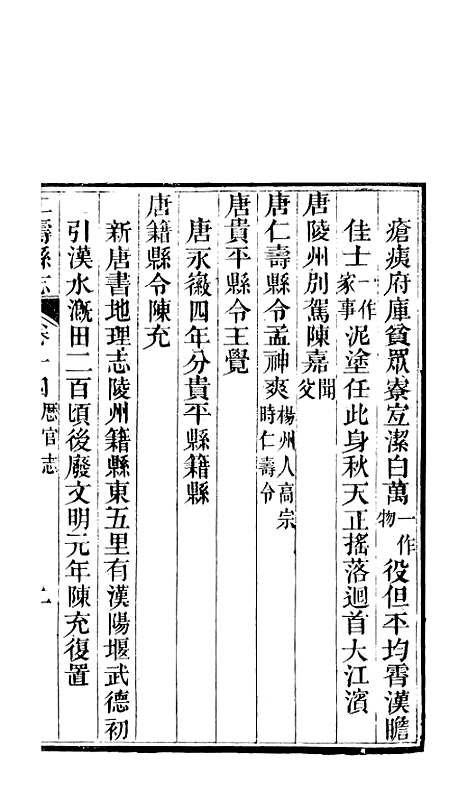 瘡痍府庫貧眾寮宐潔白萬一作物役但平均霄漢瞻
佳士一作家事泥塗任此身秋天正搖落迴首大江濱
唐陵州別駕陳嘉聞父
唐仁壽縣令孟神爽楊州人高宗時仁壽令
唐貴平縣令王覺
唐永徽四年分貴平縣籍縣
唐籍縣令陳充
新唐書地理志陵州籍縣東五里有漢陽堰武德初
引漢水溉田二百頃後廢文明元年陳充復置
壽縣志 卷十 歷官志